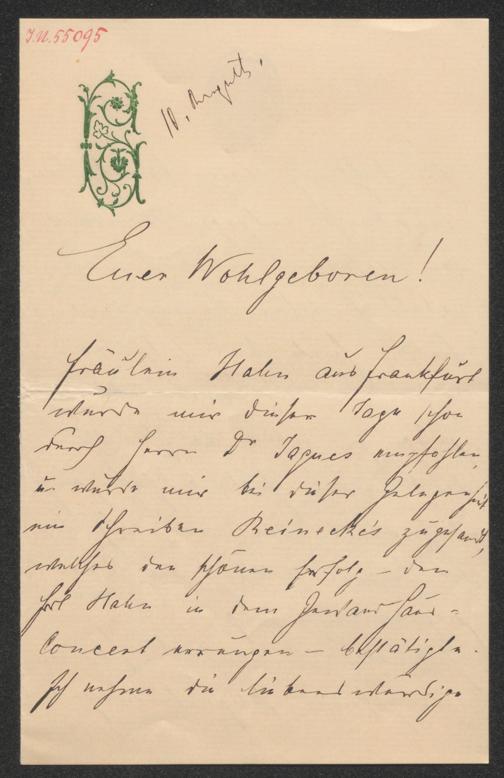 I.N. 55095
10. August.
Euer Wohlgeboren!
Fräulein Hahn aus Frankfurt
wurde mir dieser Tage schon
durch Herrn Dr Jaques empfohlen,
u. wurde mir bei dieser Gelegenheit
ein Schreiben Reinecke's zugesandt,
welches den schönen Erfolg – den
Frl Hahn in dem Gewandhaus=
Concert errungen – bestätigte.
Ich nehme die liebenswürdige